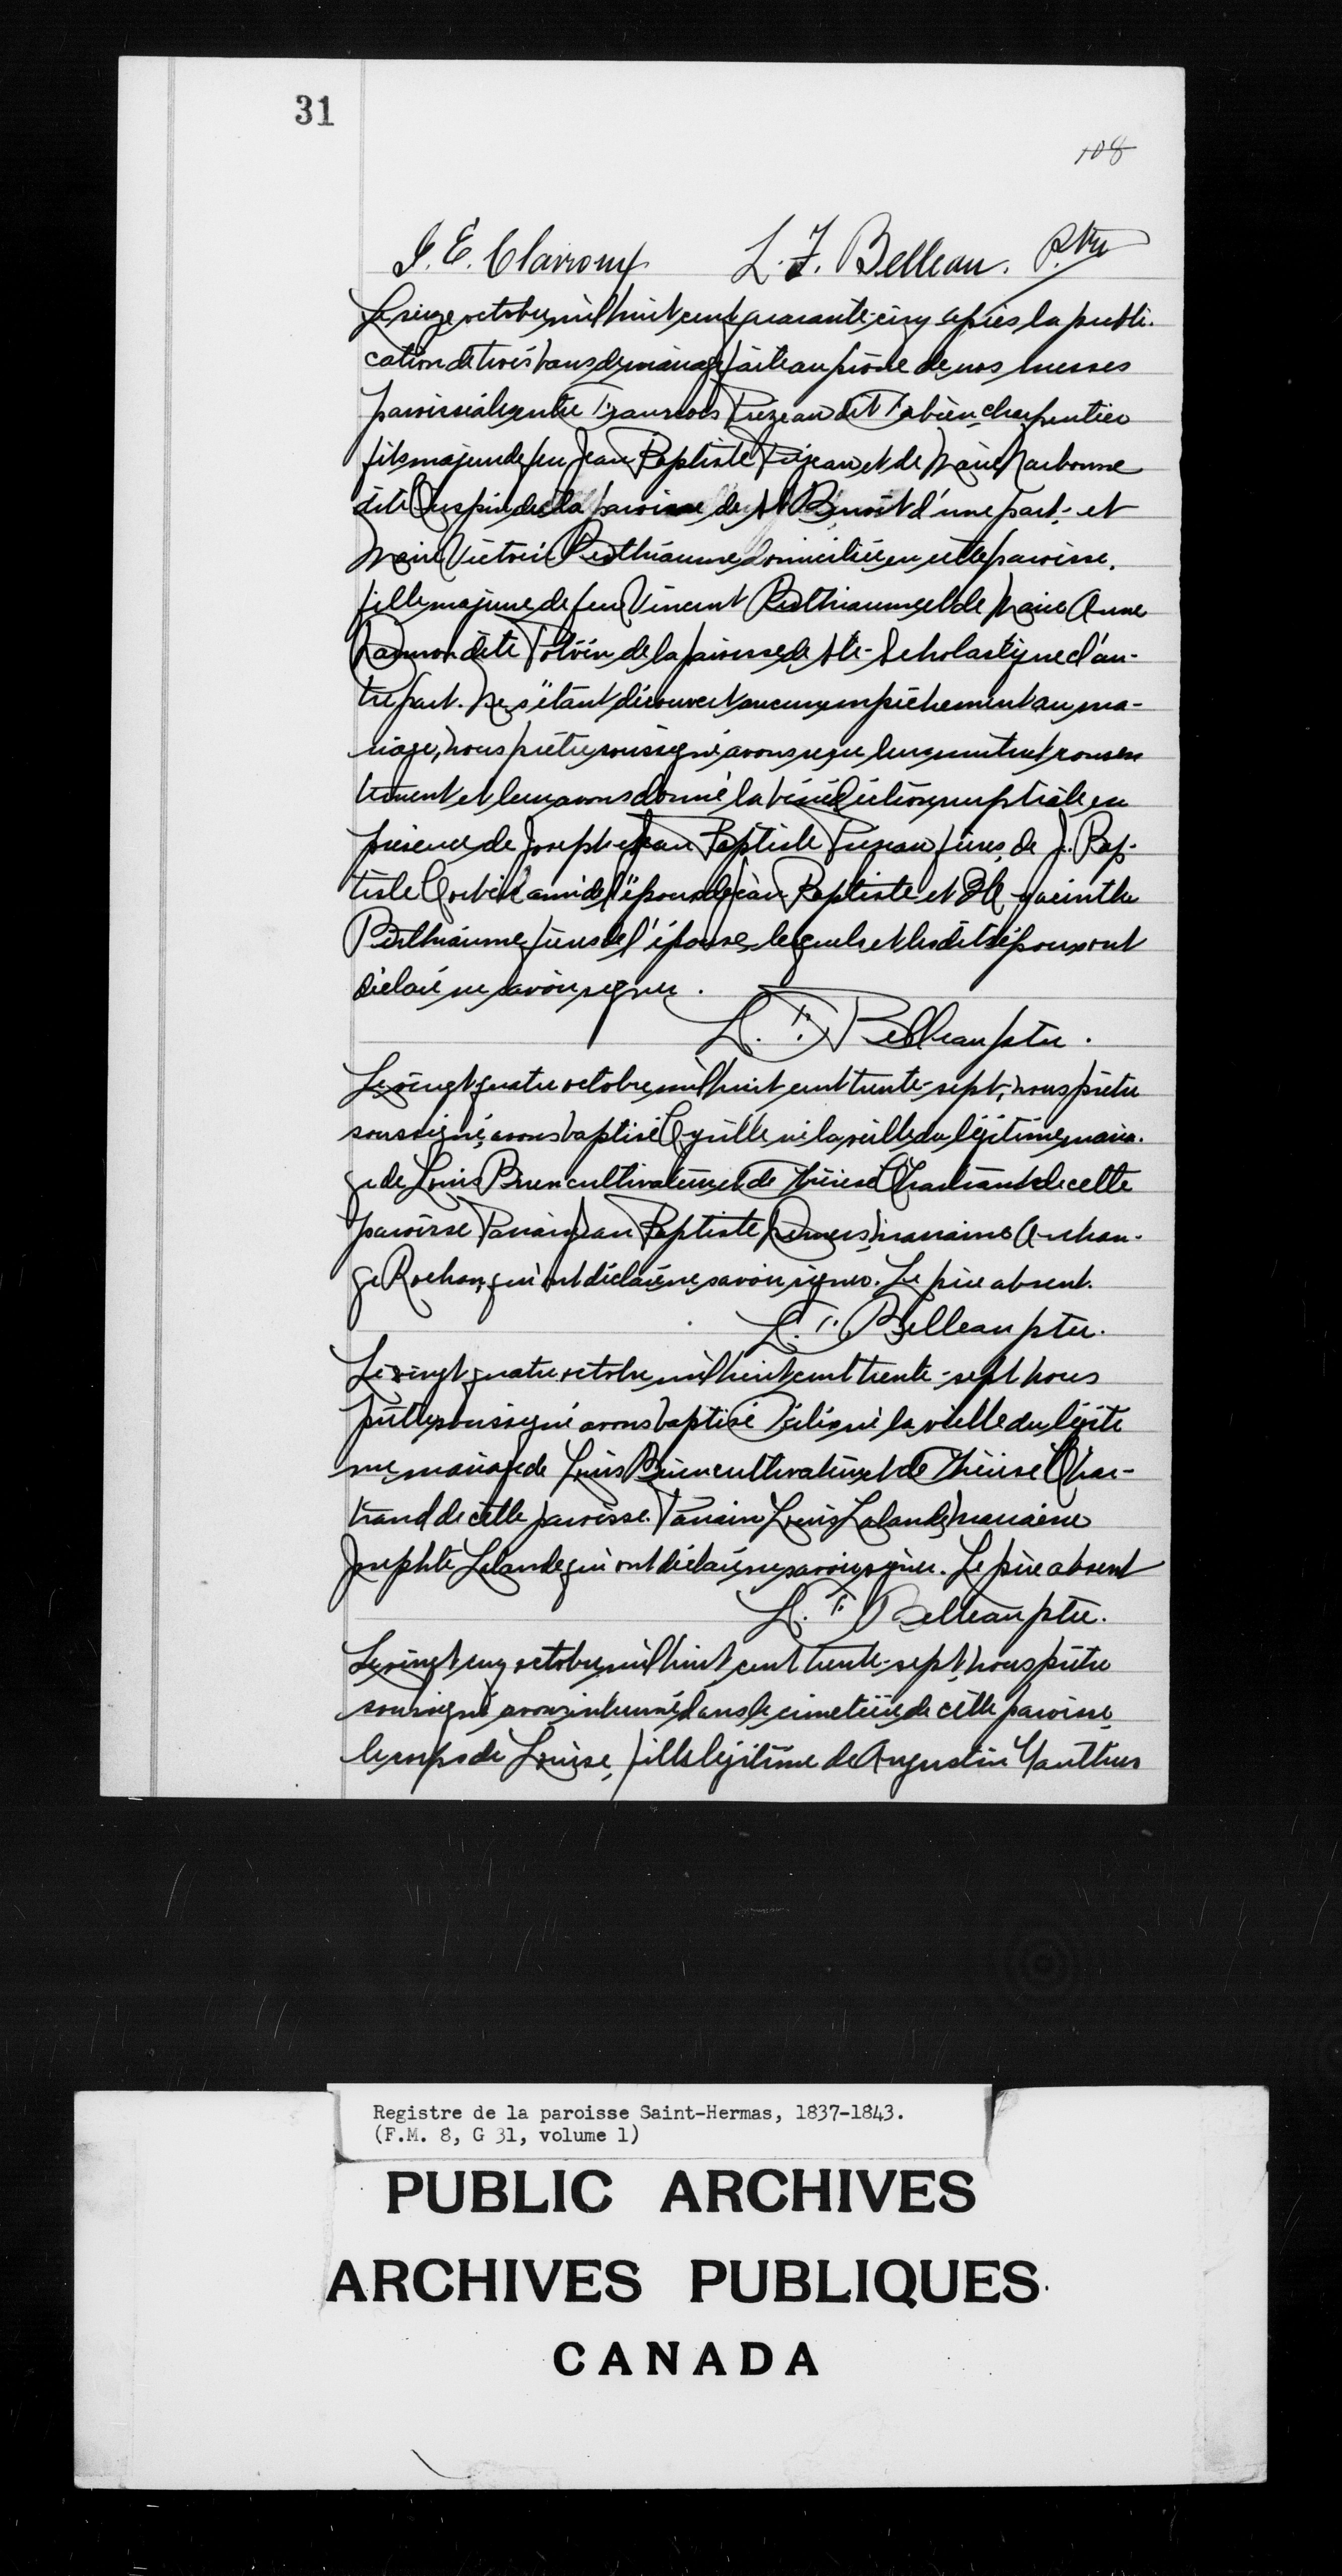 31
108
J. E. Clairoux L. F. Belleau. Ptre
Le seize octobre mil huit cent quarante-cinq après la publi-
cation de trois bans de mariage faite au prône de nos messes
paroissiales entre François Prézeau dit Fabien, charpentier
fils majeur de feu Jean Baptiste Prézeau et de Marie Narbonne
dite de la paroisse de St Benoît d'une part, et
Marie Victoire Berthiaume domiciliée en cette paroisse,
fille majeure de feu Vincent Berthiaume et de Marie Anne
dite Potvin de la paroisse de Ste-Scholastique d'au-
tre part. Ne s'étant découvert aucun empêchement au ma-
riage, nous prêtre soussigné avons reçu leur mutuel consen
tement et leur avons donné la bénédiction nuptiale en
présence de Joseph et Jean Baptiste Prezeau frères, de J. Bap-
tiste ami de l'époux de Jean Baptiste et Hyacinthe
Berthiaume frères de l'épouse, lesquels et les dits époux ont
déclaré ne savoir signer.
L. F. Belleau ptre.
Le vingt quatre octobre mil huit cent trente-sept, nous prêtre
soussigné, avons baptisé Cyrille né la veille du légitime maria-
ge de Louis Brien cultivateur et de Thérèse Chartrand de cette
paroisse Parain Jean Baptiste marraine Archan-
ge Rochon, qui ont déclaré ne savoir signer. Le père absent.
L. F. Belleau ptre.
Le vingt quatre octobre mil huit cent trente-sept nous
prêtre soussigné avons baptisé né la veille du légiti
me mariage de Louis Brien cultivateur et de Thérèse Char-
trand de cette paroisse. Parain Louis Lalande, marraine
Josephte Lalande qui ont déclaré ne savoir signer. Le père absent
L. F. Belleau ptre.
Le vingt cinq octobre mil huit cent trente-sept, nous prêtre
soussigné avons inhumé dans le cimetière de cette paroisse,
le corps de Louise, fille légitime de Augustin Gauthier
Registre de la paroisse Saint-Hermas, 1837-1843.
(F.M. 8, G 31, volume 1)
PUBLIC ARCHIVES
ARCHIVES PUBLIQUES
CANADA